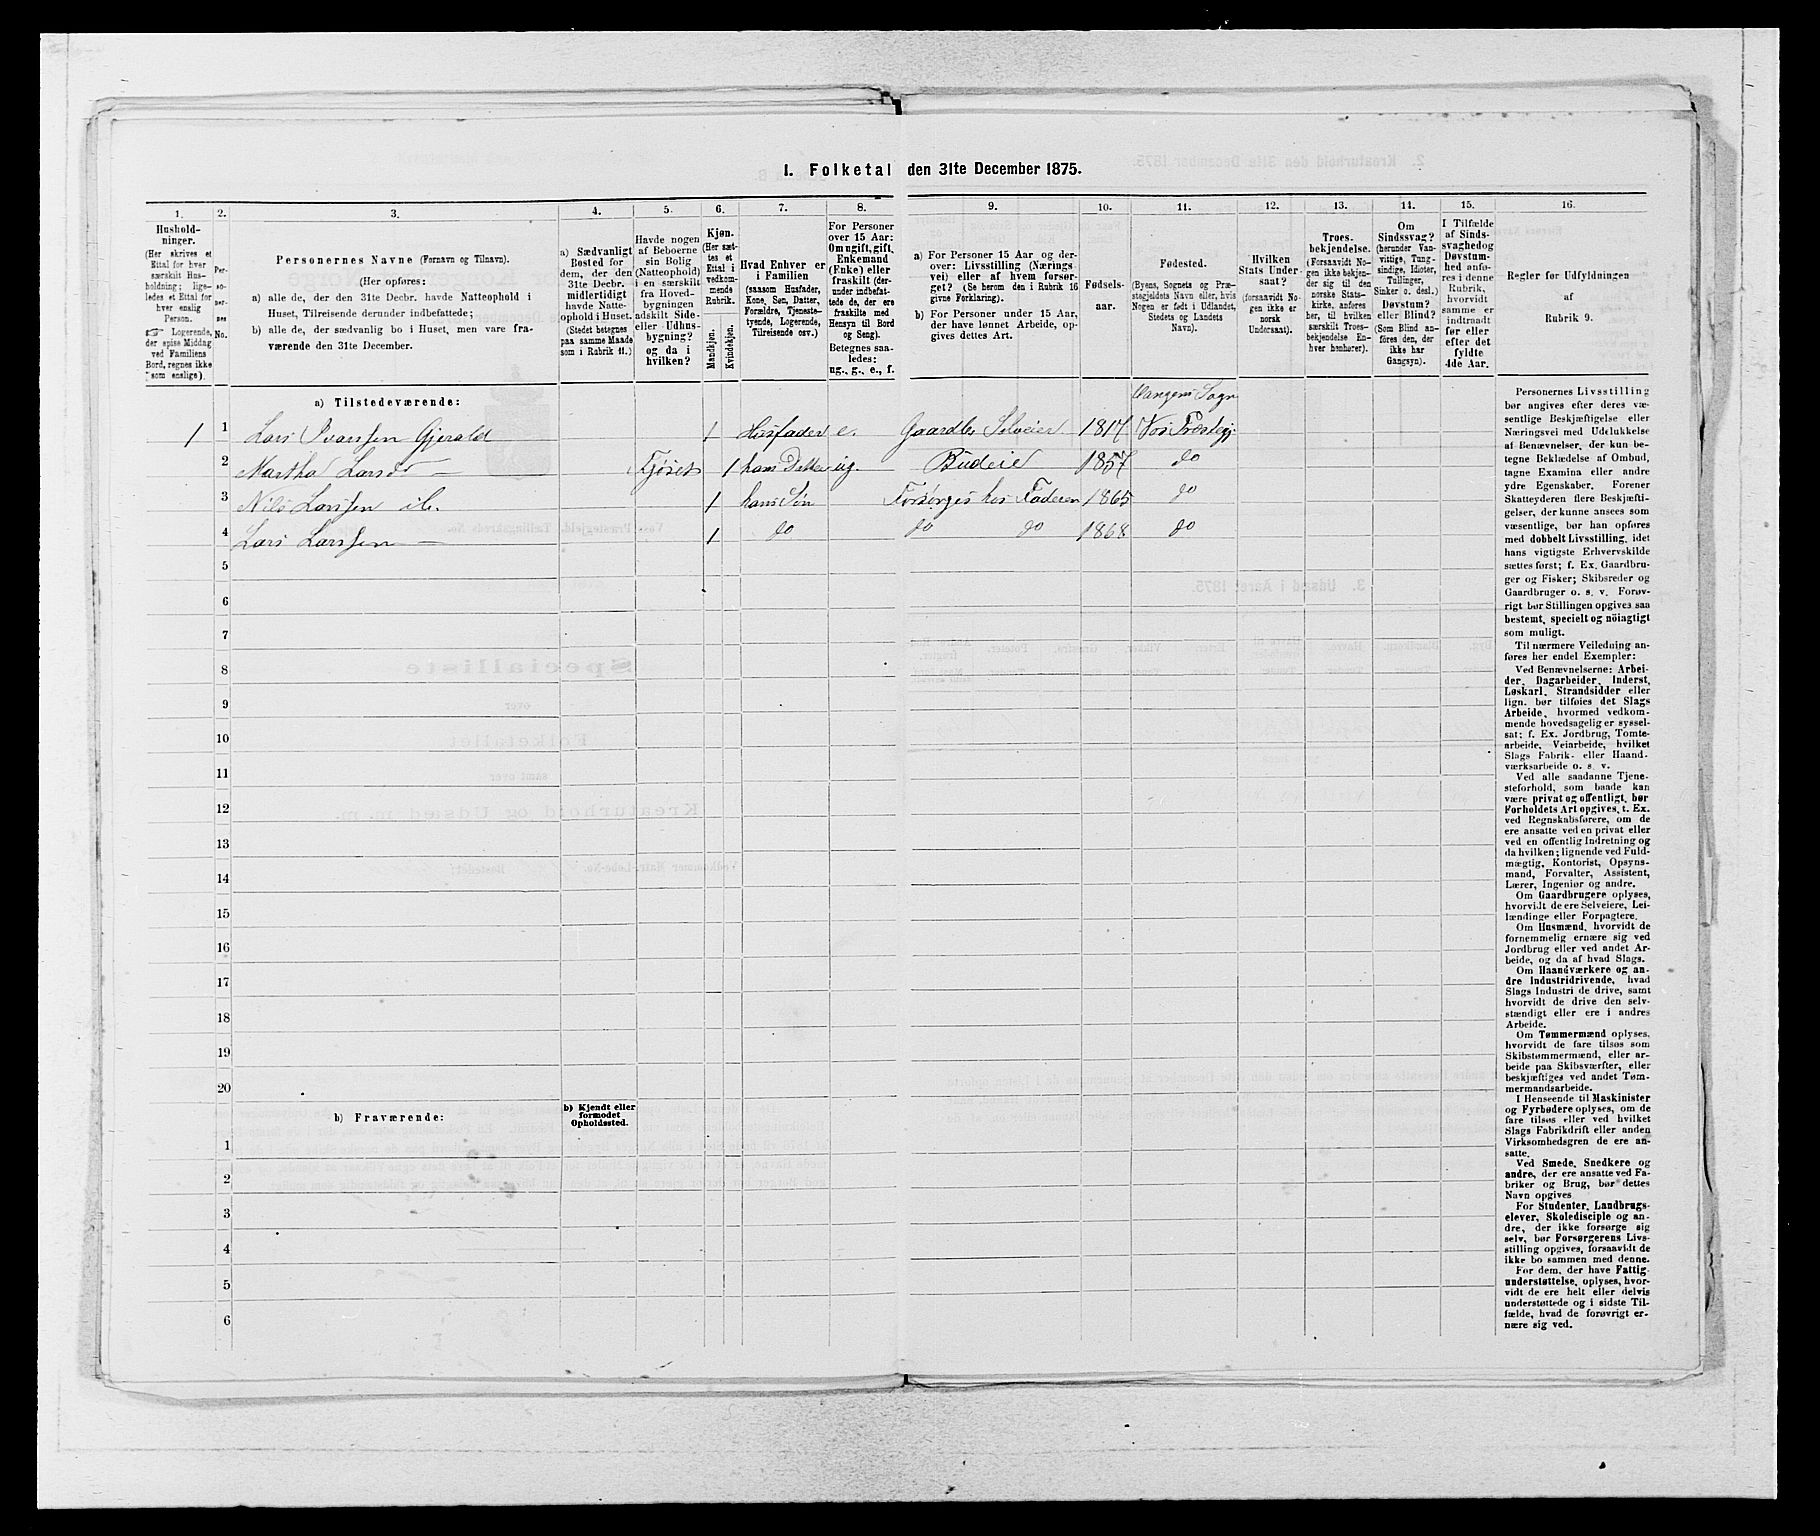 I. Folketal den 31te December 1875.
1. 2. 3. 4. 5. 6. 7. 8. 9. 10. 11. 12. 13. 14. 15. 16.
Hushold-
ninger.
(Her skrives et
Ettal for hver
særskilt Hus-
holdning; lige-
ledes et Ettal for
hver enslig
Person.
☞ Logerende,
der spise Middag
ved Familiens
Bord, regnes ikke
som enslige).
Per-
so-
ner-
nes
No.
Personernes Navne (Fornavn og Tilnavn).
(Her opføres:
a) alle de, der den 31te Decbr. havde Natteophold i
Huset, Tilreisende derunder indbefattede;
b) alle de, der sædvanlig bo i Huset, men vare fra-
værende den 31te December.
a) Sædvanligt
Bosted for
dem, der den
31te Decbr.
midlertidigt
havde Natte-
ophold i Huset.
(Stedet betegnes
paa samme Maade
som i Rubrik 11.)
Havde nogen
af Beboerne
sin Bolig
(Natteophold)
i en særskilt
fra Hoved-
bygningen
adskilt Side-
eller Udhus-
bygning?
og da i
hvilken?
Kjøn.
(Her sæt-
tes et
Ettal i
vedkom-
mende
Rubrik.
Mandkjøn.
Kvindekjøn.
Hvad Enhver er
i Familien
(saasom Husfader,
Kone, Søn, Datter,
Forældre, Tjeneste-
tyende, Logerende,
Tilreisende osv.)
For Personer
over 15 Aar:
Om ugift, gift,
Enkemand
(Enke) eller
fraskilt (der-
under indbefat-
tede de, der ere
fraskilte med
Hensyn til Bord
og Seng).
Betegnes saa-
ledes:
ug., g., e., f.
a) For Personer 15 Aar og der-
over: Livsstilling (Nærings-
vei) eller af hvem forsør-
get? (Se herom den i Rubrik 16
givne Forklaring).
b) For Personer under 15 Aar,
der have lønnet Arbeide, op-
gives dettes Art.
Fødsels-
aar.
Fødested.
(Byens, Sognets og Præ-
stegjeldets Navn eller, hvis
Nogen er født i Udlandet,
Stedets og Landets
Navn).
Hvilken
Stats Under-
saat?
(forsaavidt No-
gen ikke er
norsk
Undersaat).
Troes-
bekjendelse.
(Forsaavidt No-
gen ikke bekjen-
der sig til den
norske Stats-
kirke, anføres
her, til hvilken
særskilt Troes-
bekjendelse En-
hver henhører).
Om
Sindssvag?
(herunder Van-
vittige, Tung-
sindige, Idioter,
Tullinger,
Sinker o. desl.)
Døvstum?
eller Blind?
(Som Blind an-
føres den, der
ikke har
Gangsyn).
I Tilfælde
af Sinds-
svaghed og
Døvstum-
hed anfø-
res i denne
Rubrik,
hvorvidt
samme er
indtraadt
før eller
efter det
fyldte
4de Aar.
Regler for Udfyldningen
af
Rubrik 9.
a) Tilstedeværende:
Vangens Sogn
1 1 Lars Ivarssen Gjerald 1 Husfader e. Gaardbr Selveier 1817 Vos Præstegj.
2 Martha Larsdr — Fjøset 1 hans Datter ug. Budeie 1857 do
3 Nils Larssen ib. 1 hans Søn Forsørges hos Faderen 1865 do
4 Lars Larssen — 1 do do do 1868 do
5
6
7
8
9
10
11
12
13
14
15
16
17
18
19
20
b) Fraværende:
b) Kjendt eller
formodet
Opholdssted.
1
2
3
4
5
6
Personernes Livsstilling
bør angives efter deres væ-
sentlige Beskjæftigelse eller
Næringsvei med Udelukkelse
af Benævnelser, der kun be-
tegne Beklædelse af Ombud,
tagne Examina eller andre
ydre Egenskaber. Forener
Skatteyderen flere Beskjæfti-
gelser, der kunne ansees som
væsentlige, bør han opføres
med dobbelt Livsstilling, idet
hans vigtigste Erhvervskilde
sættes først; f. Ex. Gaardbru-
ger og Fisker; Skibsreder og
Gaardbruger o. s. v. Forøv-
rigt bør Stillingen opgives saa
bestemt, specielt og nöiagtigt
som muligt.
Til nærmere Veiledning an-
føres her endel Exempler:
Ved Benævnelserne: Arbei-
der, Dagarbeider, Inderst,
Løskarl, Strandsidder eller
lign. bør tilføies det Slags
Arbeide, hvormed vedkom-
mende hovedsagelig er syssel-
sat; f. Ex. Jordbrug, Tomte-
arbeide, Veiarbeide, hvilket
Slags Fabrik- eller Haand-
værksarbeide o. s. v.
Ved alle saadanne Tjene-
steforhold, som baade kan
være privat og offentligt, bør
Forholdets Art opgives, t. Ex.
ved Regnskabsførere, om de
ere ansatte ved en privat eller
ved en offentlig Indretning og
da hvilken; lignende ved Fuld-
mægtig, Kontorist, Opsyns-
mand, Forvalter, Assistent,
Lærer, Ingeniør og andre.
Om Gaardbrugere oplyses,
hvorvidt de ere Selveiere, Lei-
lændinge eller Forpagtere.
Om Husmænd, hvorvidt de
fornemmelig ernære sig ved
Jordbrug eller ved andet Ar-
beide, og da af hvad Slags.
Om Haandværkere og an-
dre Industridrivende, hvad
Slags Industri de drive, samt
hvorvidt de drive den selv-
stændigt eller ere i andres
Arbeide.
Om Tømmermænd oplyses,
hvorvidt de fare tilsøs som
Skibstømmermænd, eller ar-
beide paa Skibsværfter, eller
beskjæftiges ved andet Tøm-
mermandsarbeide.
I Henseende til Maskinister
og Fyrbødere oplyses, om de
fare tilsøs eller ved hvilket
Slags Fabrikdrift eller anden
Virksomhedsgren de ere an-
satte.
Ved Smede, Snedkere og
andre, der ere ansatte ved Fa-
briker og Brug, bør dettes
Navn opgives
For Studenter, Landbrugs-
elever, Skoledisciple og an-
dre, der ikke forsørge sig
selv, bør Forsørgerens Livs-
stilling opgives, forsaavidt de
ikke bo sammen med denne.
For dem, der have Fattig-
understøttelse, oplyses, hvor-
vidt de ere helt eller delvis
understøttede og i sidste Til-
fælde, hvad de forøvrigt er-
nære sig ved.